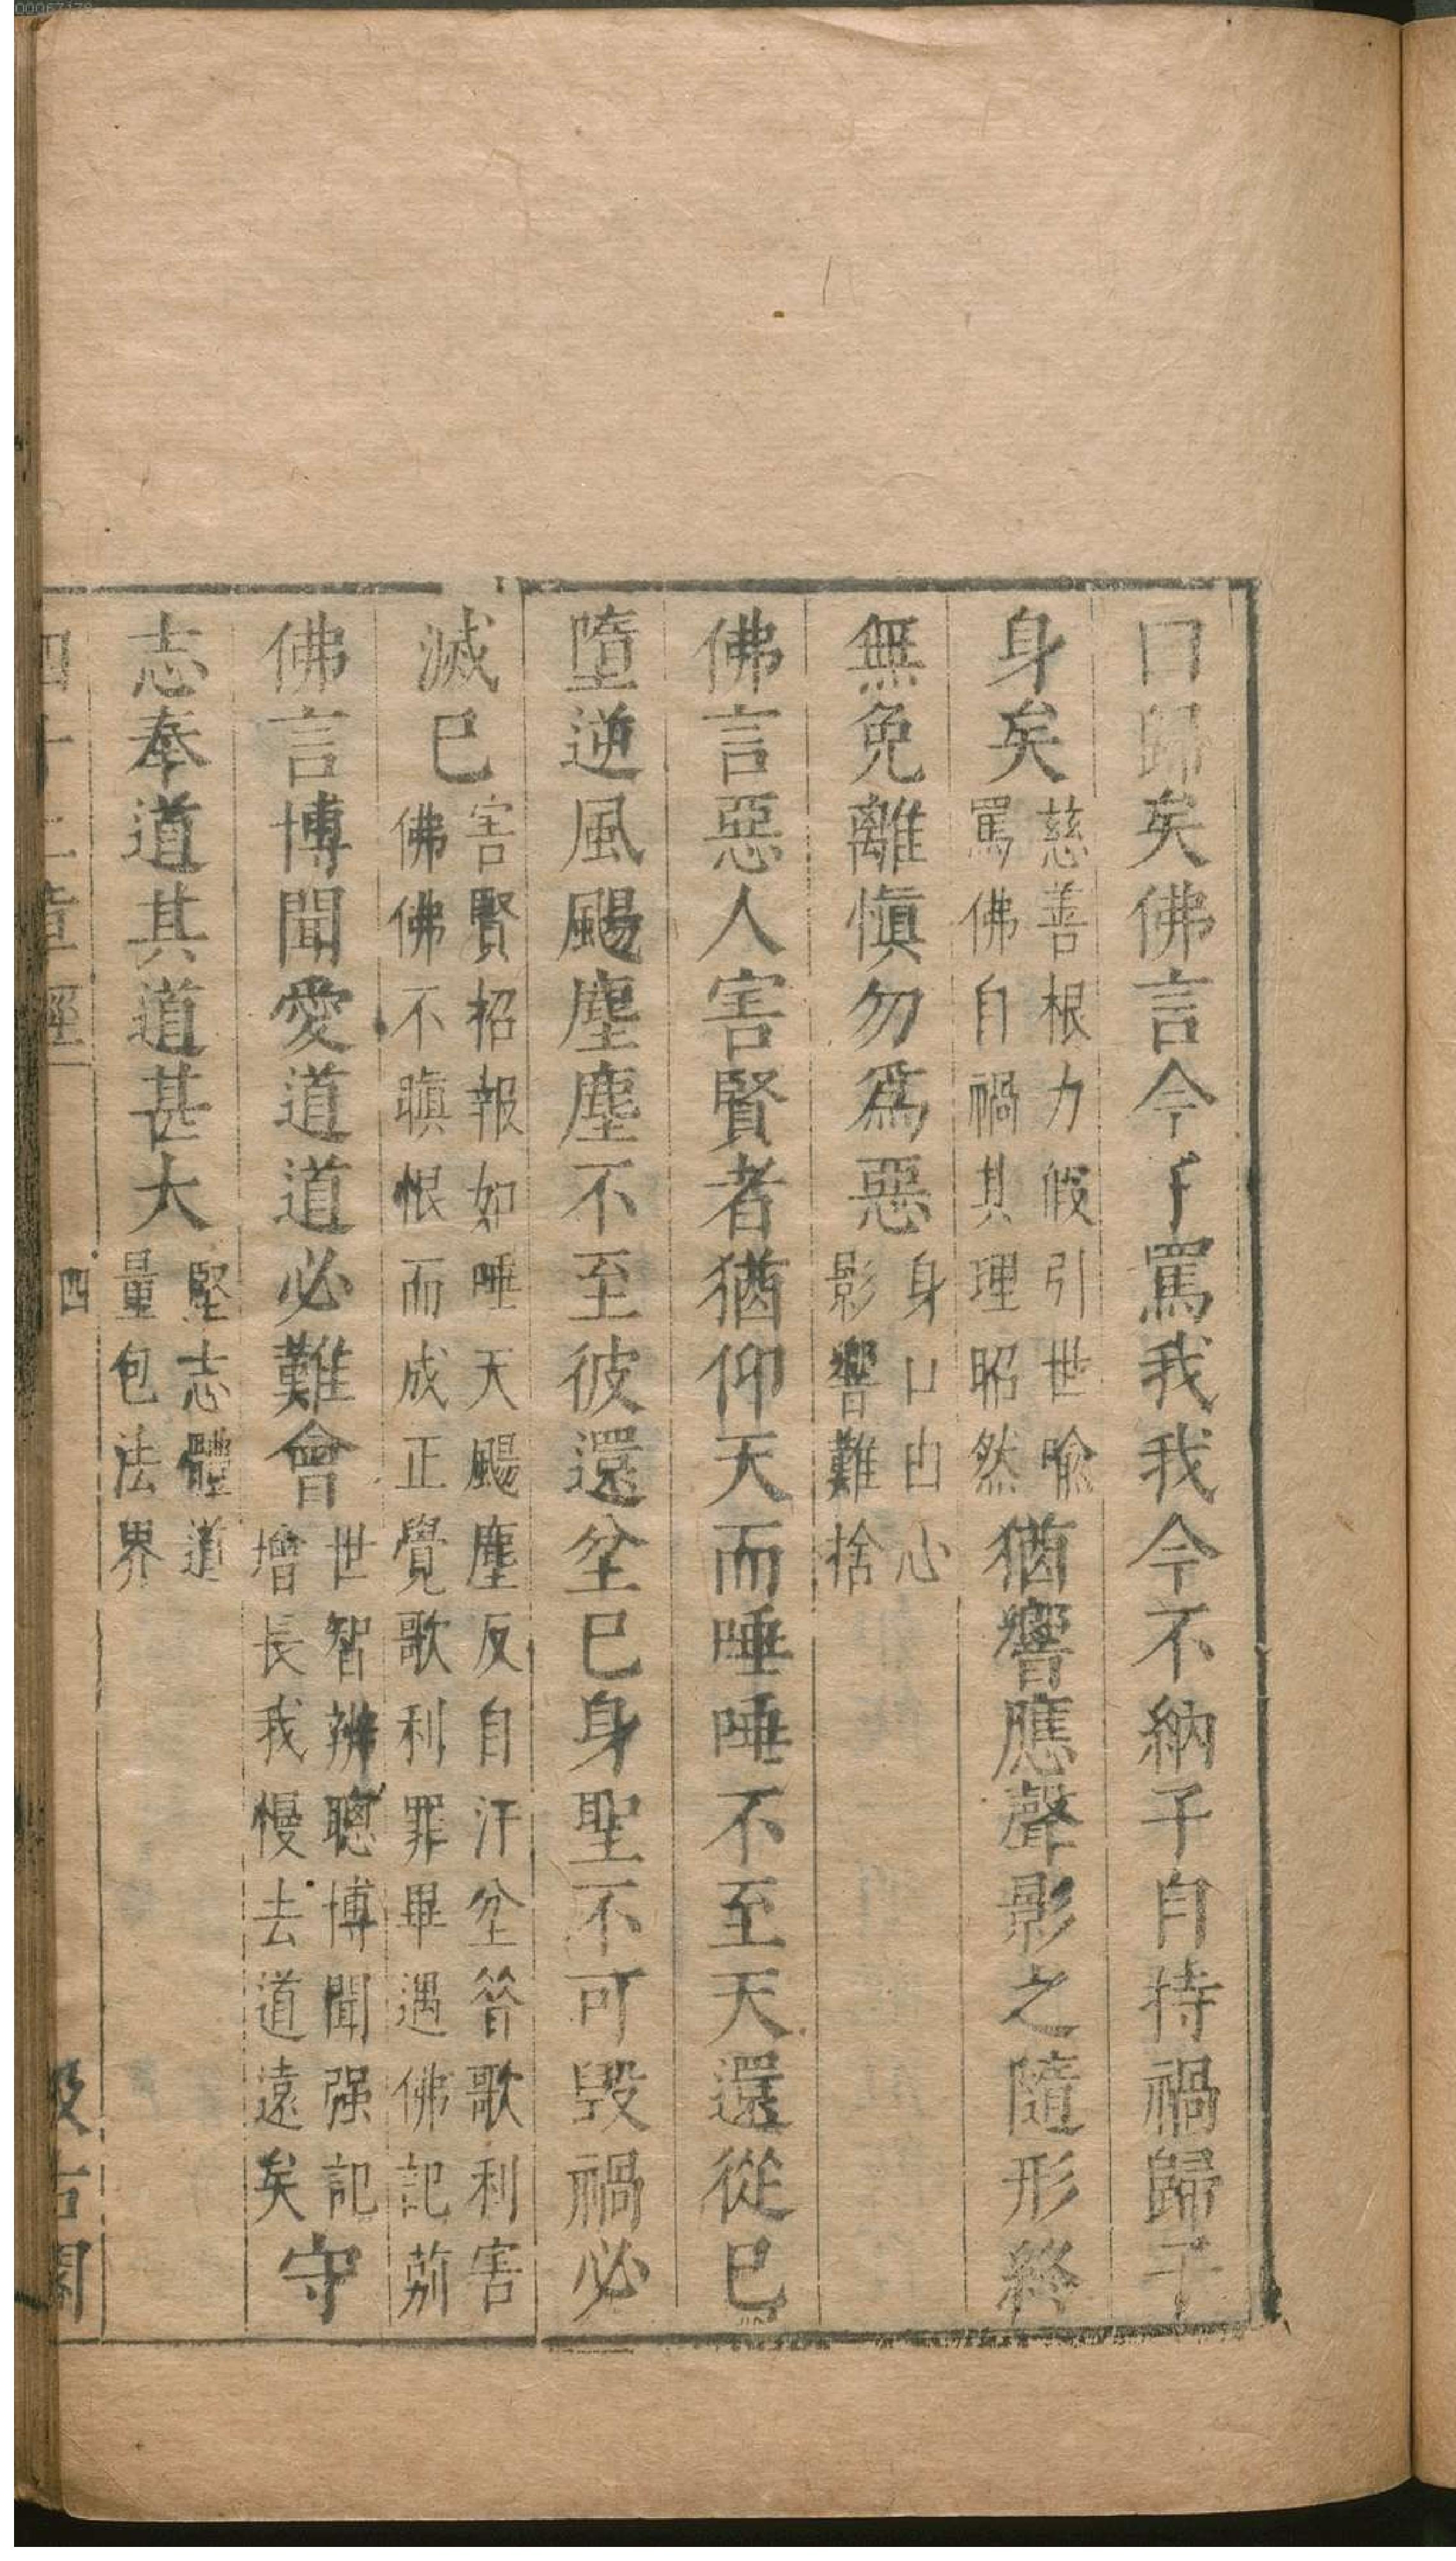 曰歸矣佛言今子罵我我今不納子自持禍歸子
身矣慈善根力假引世喻罵佛自禍其理昭然猶響應聲影之隨形終
無免離慎勿爲惡身口由心影響難捨
佛言惡人害賢者猶仰天而唾唾不至天還從己
墮逆風颺塵塵不至彼還坌己身聖不可毀禍必
滅己害賢招報如唾天颺塵反自汙坌答歌利害佛佛不瞋恨而成正覺歌利罪畢遇佛記莂
佛言博聞愛道道必難會世智辨聰博聞强記增長我慢去道遠矣守
志奉道其道甚大堅志體道量包法界
四十二章經
四
汲古閣
00067178